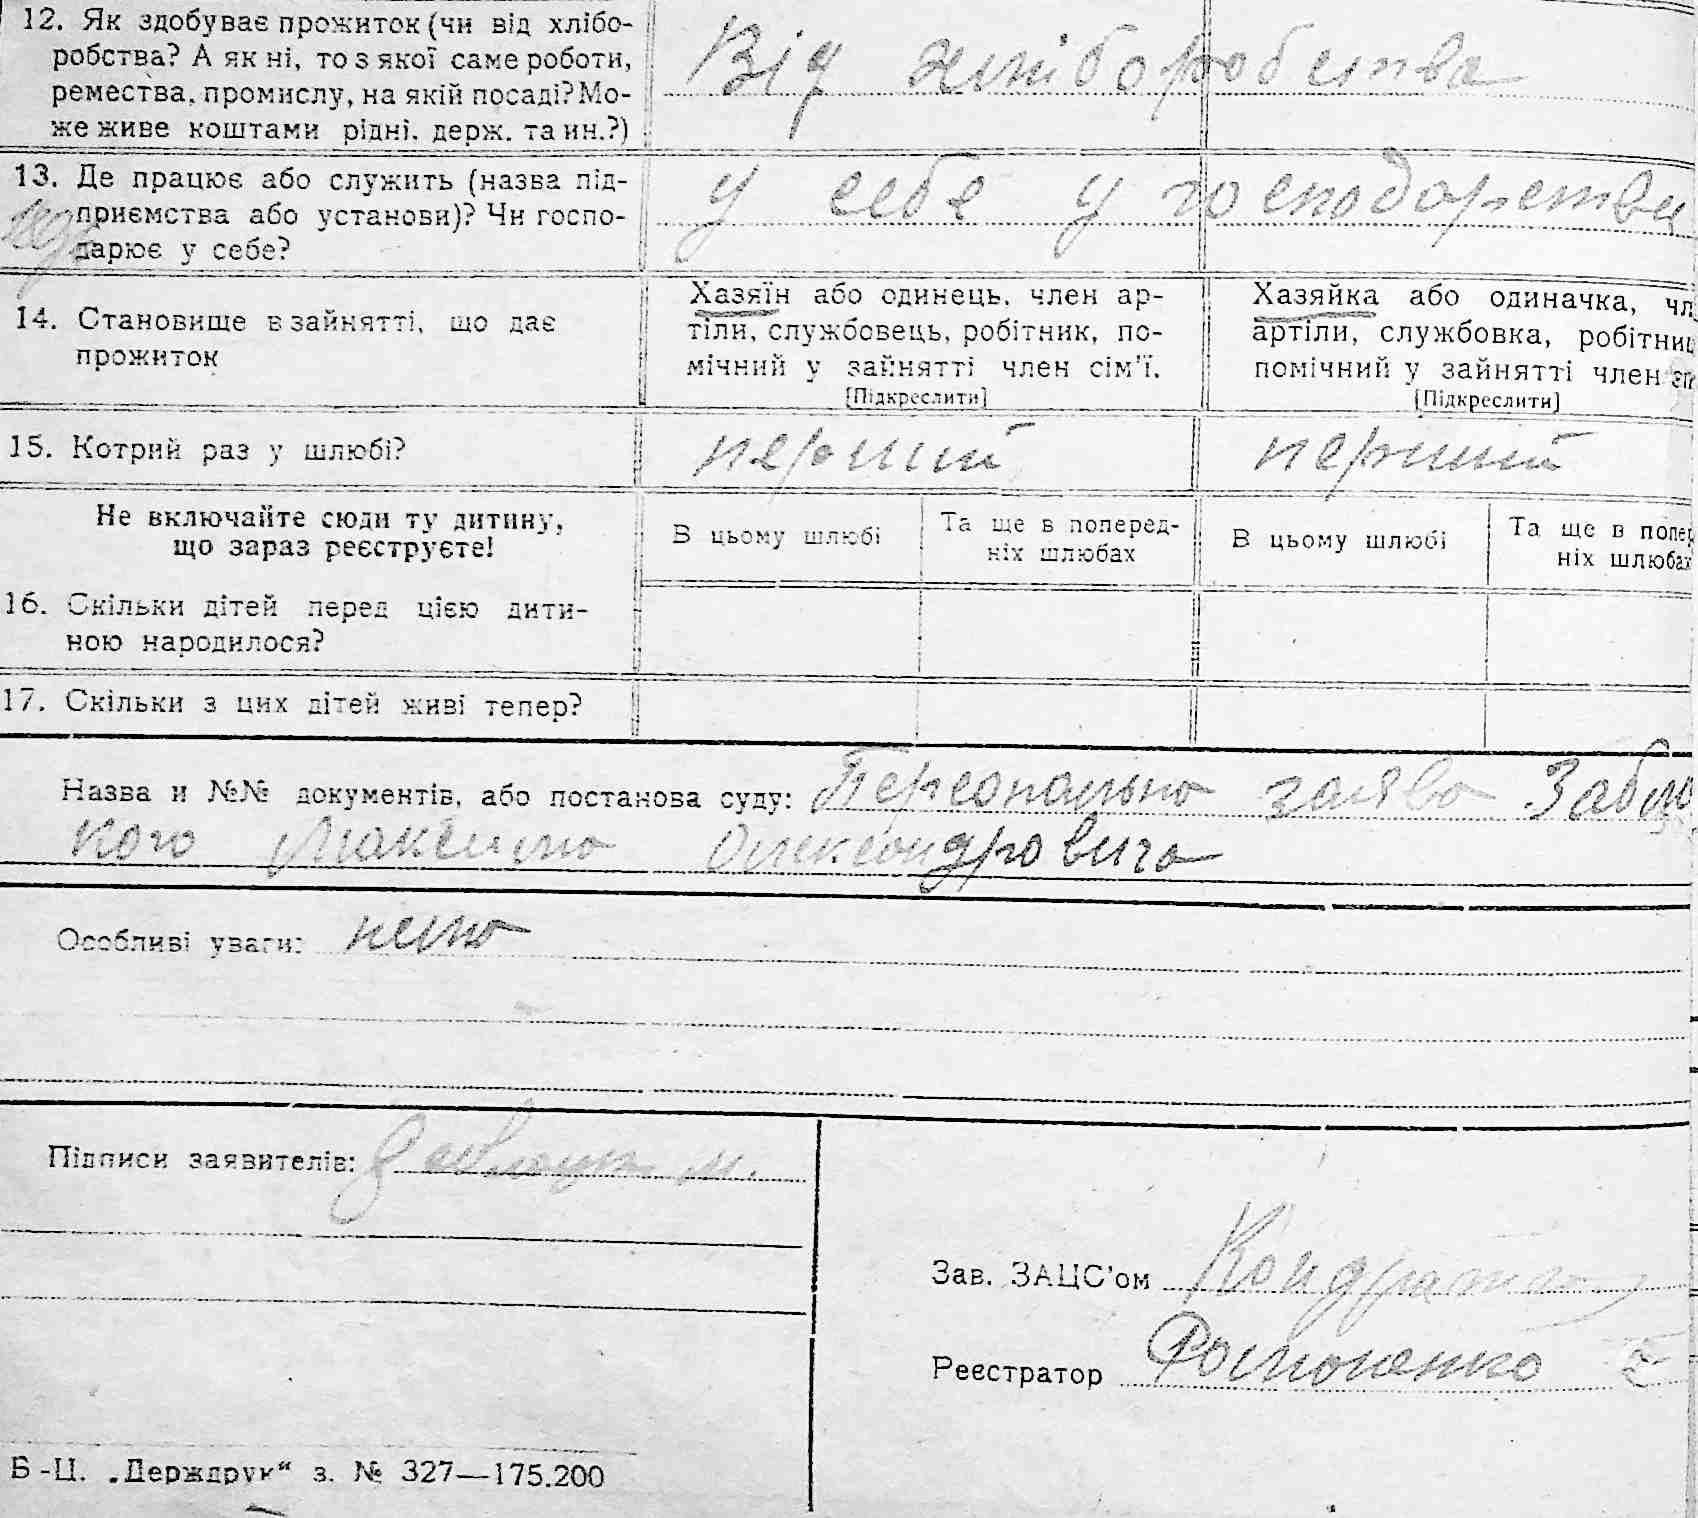 12. Як здобуває прожиток (чи від хлібо-
робства? А як ні, то з якої саме роботи,
ремества, промислу, на якій посаді? Мо-
же живе коштами рідні, держ. та ин.?)
Від хліборобства
13. Де працює або служить (назва під-
приємства або установи)? Чи госпо-
дарює у себе?
у себе у господарстві
14. Становище в зайнятті, що дає
прожиток
Хазяїн або одинець, член ар-
тіли, службовець, робітник, по-
мічний у зайнятті член сім'ї.
[Підкреслити]
Хазяйка або одиначка, чл
артіли, службовка, робітниц
помічний у зайнятті член
[Підкреслити]
15. Котрий раз у шлюбі?
перший
перший
Не включайте сюди ту дитину,
що зараз реєструєте!
В цьому шлюбі
Та ще в поперед-
ніх шлюбах
В цьому шлюбі
Та ще в попер
ніх шлюбах
16. Скільки дітей перед цією дити-
ною народилося?
17. Скільки з цих дітей живі тепер?
Назва и №№ документів, або постанова суду: Персонально заява Забло
кого Максима Олександровича
Особливі уваги: нема
Підписи заявителів: М.
Зав. ЗАЦС'ом
Реєстратор
Б-Ц. „Держдрук“ з. № 327—175.200